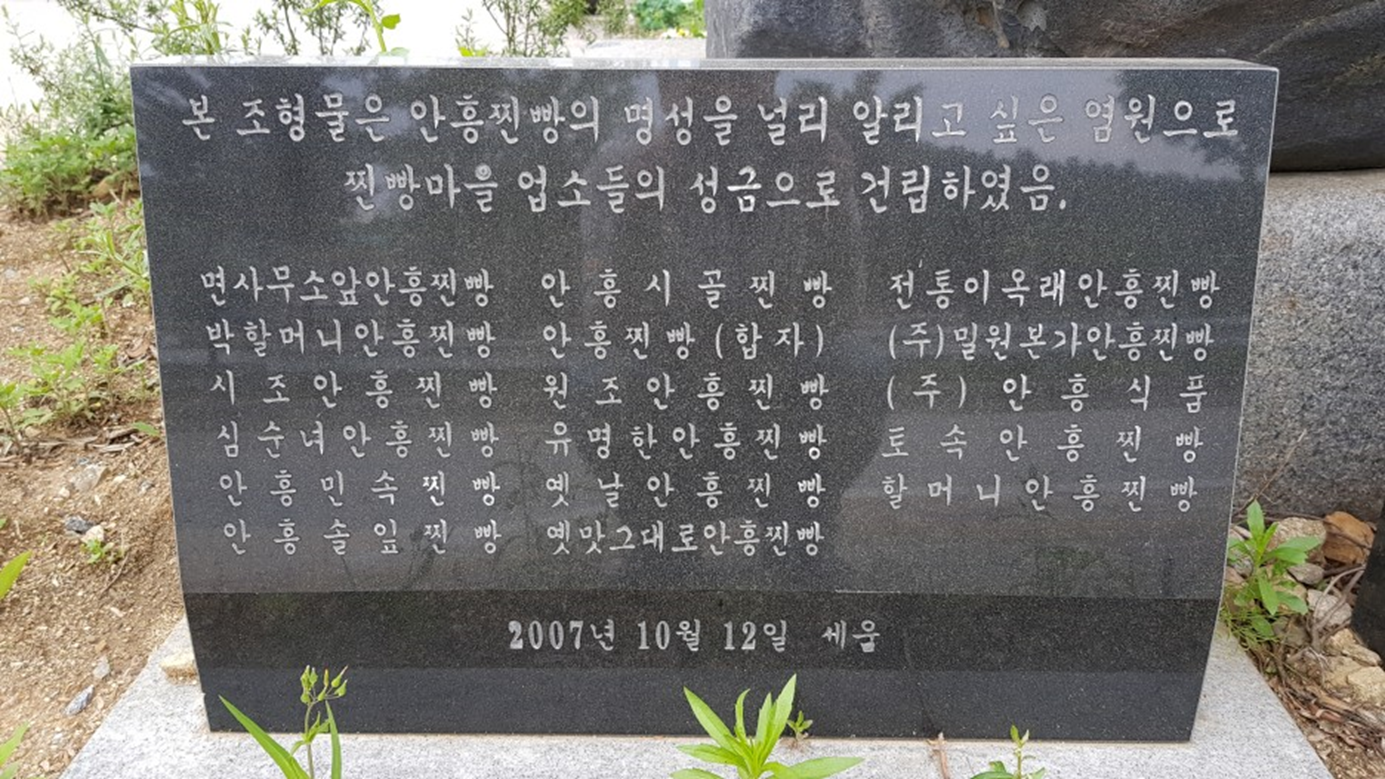 본 조형물은 안흥찐빵의 명성을 널리 알리고 싶은 염원으로
찐빵마을 업소들의 성금으로 건립하였음.
면사무소앞안흥찐빵 안흥시골찐빵 전통이옥래안흥찐빵
박할머니안흥찐빵 안흥찐빵(합자) (주)밀원본가안흥찐빵
시조안흥찐빵 원조안흥찐빵 (주)안흥식품
심순녀안흥찐빵 유명한안흥찐빵 토속안흥찐빵
안흥민속찐빵 옛날안흥찐빵 할머니안흥찐빵
안흥솔잎찐빵 옛맛그대로안흥찐빵
2007년 10월 12일 세움